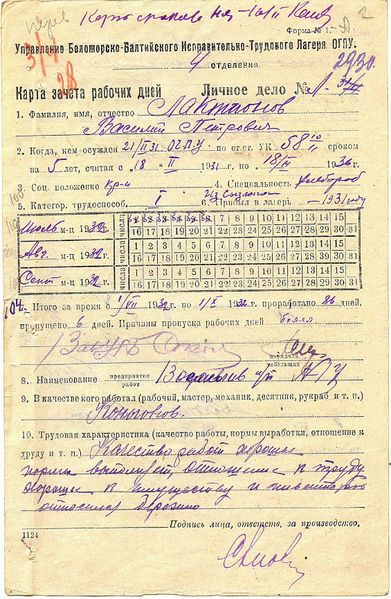 Форма № 1.
Управление Беломорско-Балтийского Исправительно-Трудового Лагеря ОГПУ.
4 отделения.
Карта зачета рабочих дней Личное дело №
1. Фамилия, имя, отчество Лактионов
Василий Петрович
2. Когда, кем осужден 21/II 31 ОГПУ по ст.ст. УК 58 10/11 сроком
на 5 лет, считая с 18-II 1931 г. по 18/II 1936 г.
3. Соц. положение Кр-н 4. Специальность хлебороб
5. Категор. трудоспособ. I 6. Прибыл в лагерь 1931 году
Июль м-ц 1932 числа 7 8 9 10 11 12 13 14 15
16 17 18 19 20 21 22 23 24 25 26 27 28 29 30 31
Авг. м-ц 1932 числа 1 2 3 4 5 6 7 8 9 10 11 12 13 14 15
16 17 18 19 20 21 22 23 24 25 26 27 28 29 30 31
Сент м-ц 1932 числа 1 2 3 4 5 6 7 8 9 10 11 12 13 14 15
16 17 18 19 20 21 22 23 24 25 26 27 28 29 30 31
Итого за время с 1/VII 1932 г. по 1/X 1932 г. проработано 86 дней,
пропущено 6 дней. Причины пропуска рабочих дней болел
8. Наименование предприятия работ
9. В качестве кого работал (рабочий, мастер, механик, десятник, рукраб и т. п.)
Коногонов.
10. Трудовая характеристика (качество работы, нормы выработки, отношение к
труду и т. п.) Качество работ хорошее
нормы выполняет, отношение к труду
хорошее к имуществу и инвентарю
относился бережно
Подпись лица, ответств. за производство.
1124